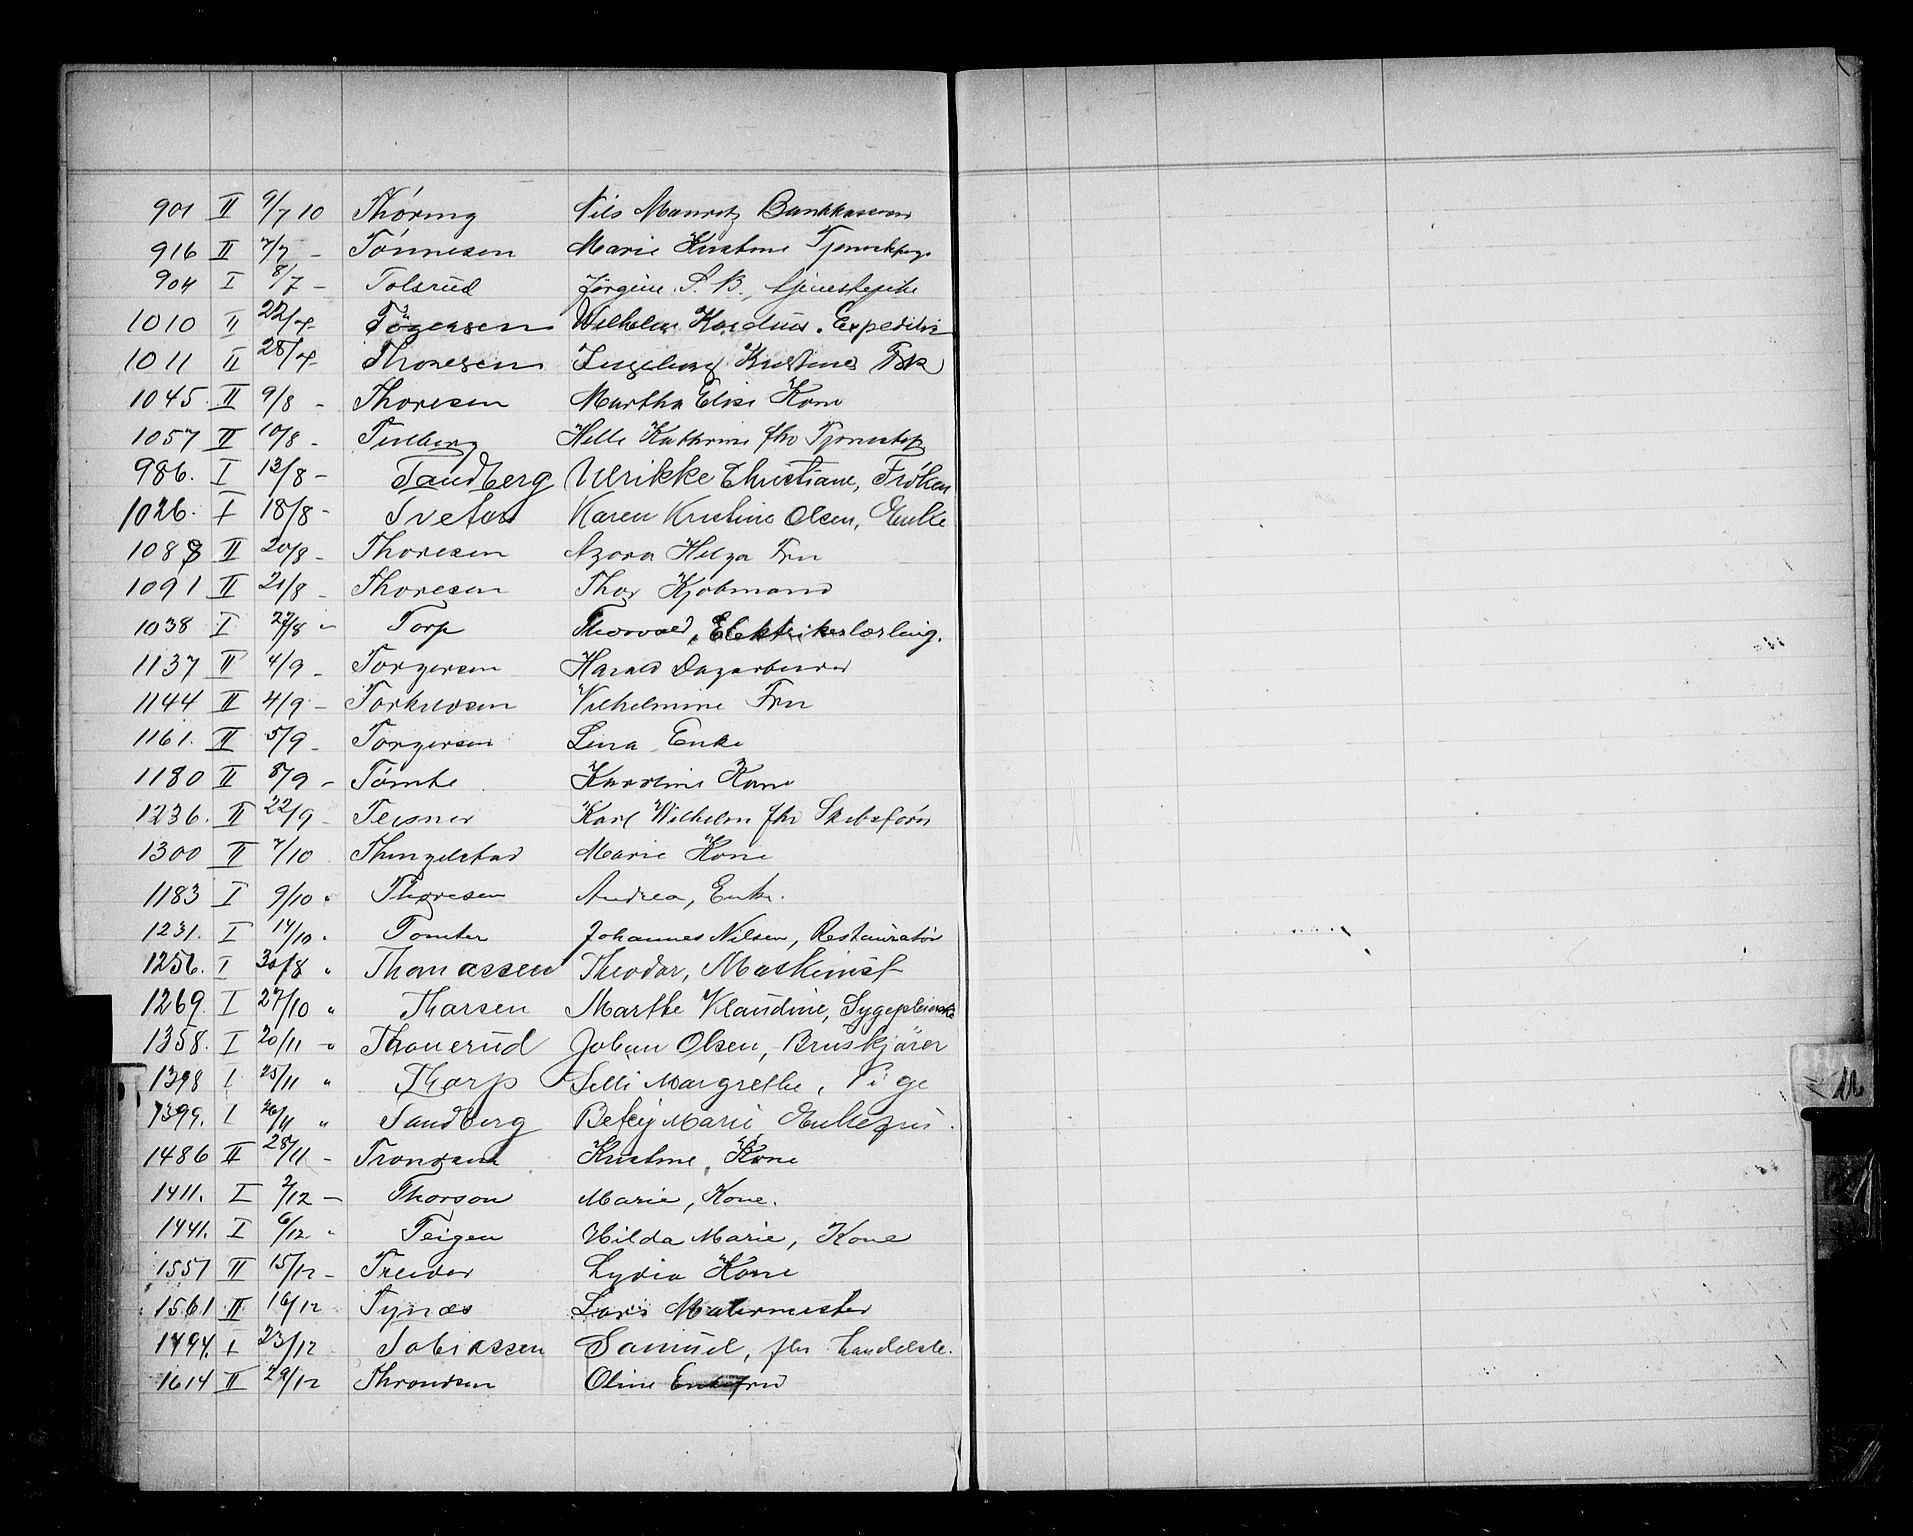 901 II 9/7 10 Thóring Nils Mauritz Bankkasserer
916 II 7/7 - Tónnesen Marie Kristine
904 I 8/7 - Tolsrud Jørgine S. B.,
1010 II 22/7- Wilhelm
1011 II 28/7- Thoresen Ingeborg Kristine
1045 II 9/8 - Thoresen Martha Elise Kone
1057 II 10/8 - Helle Kathrine fhv
986. I 13/8 - Tandberg Ulrikke Christiane, Frøken
1026. I 18/8 - Tveten Karen Kristine Olsen, Enke
1088 II 20/8 - Thoresen Azora Helga Fru
1091 II 21/8 - Thoresen Thor Kjøbmand
1038 I 22/8 " Torp Thorvald, Elektrikerlærling.
1137 II 4/9 - Torgersen Harald
1144 II 4/9 - Torkildsen Vilhelmine Fru
1161. II 5/9 - Torgersen Lina Enke
1180 II 8/9 - Tómte Karoline Kone
1236. II 22/9 - Teisner Karl Wilhelm fhv Skibsfører
1300 II 7/10 Thingelstad Marie Kone
1183 I 9/10 " Thoresen Andrea, Enke.
1231. I 14/10 " Tomter Johannes Nilsen, Restauratør
1256. I 30/8 " Thomassen Theodor, Maskinist
1269. I 27/10 " Thorsen Marthe Klaudine, Sygepleierske
1358. I 20/11 " Thonerud Johan Olsen, Bruskjører
1398 I 25/11 " Thorp Selli Margrethe, Pige
1399. I 26/11 " Sandberg Betzy Marie, Enkefru.
1486 II 28/11 - Trondsen Kristine, Kone
1411. I 2/12 - Thorson Marie, Kone.
1441. I 6/12 " Teigen Hilda Marie, Kone
1557 II 15/12 - Treider Lydia Kone
1561 II 16/12 Tynæs Lars Malermester
1494. I 23/12 Tobiassen Samuel, fhv
1614 II 29/12 Throndsen Oline Enkefru